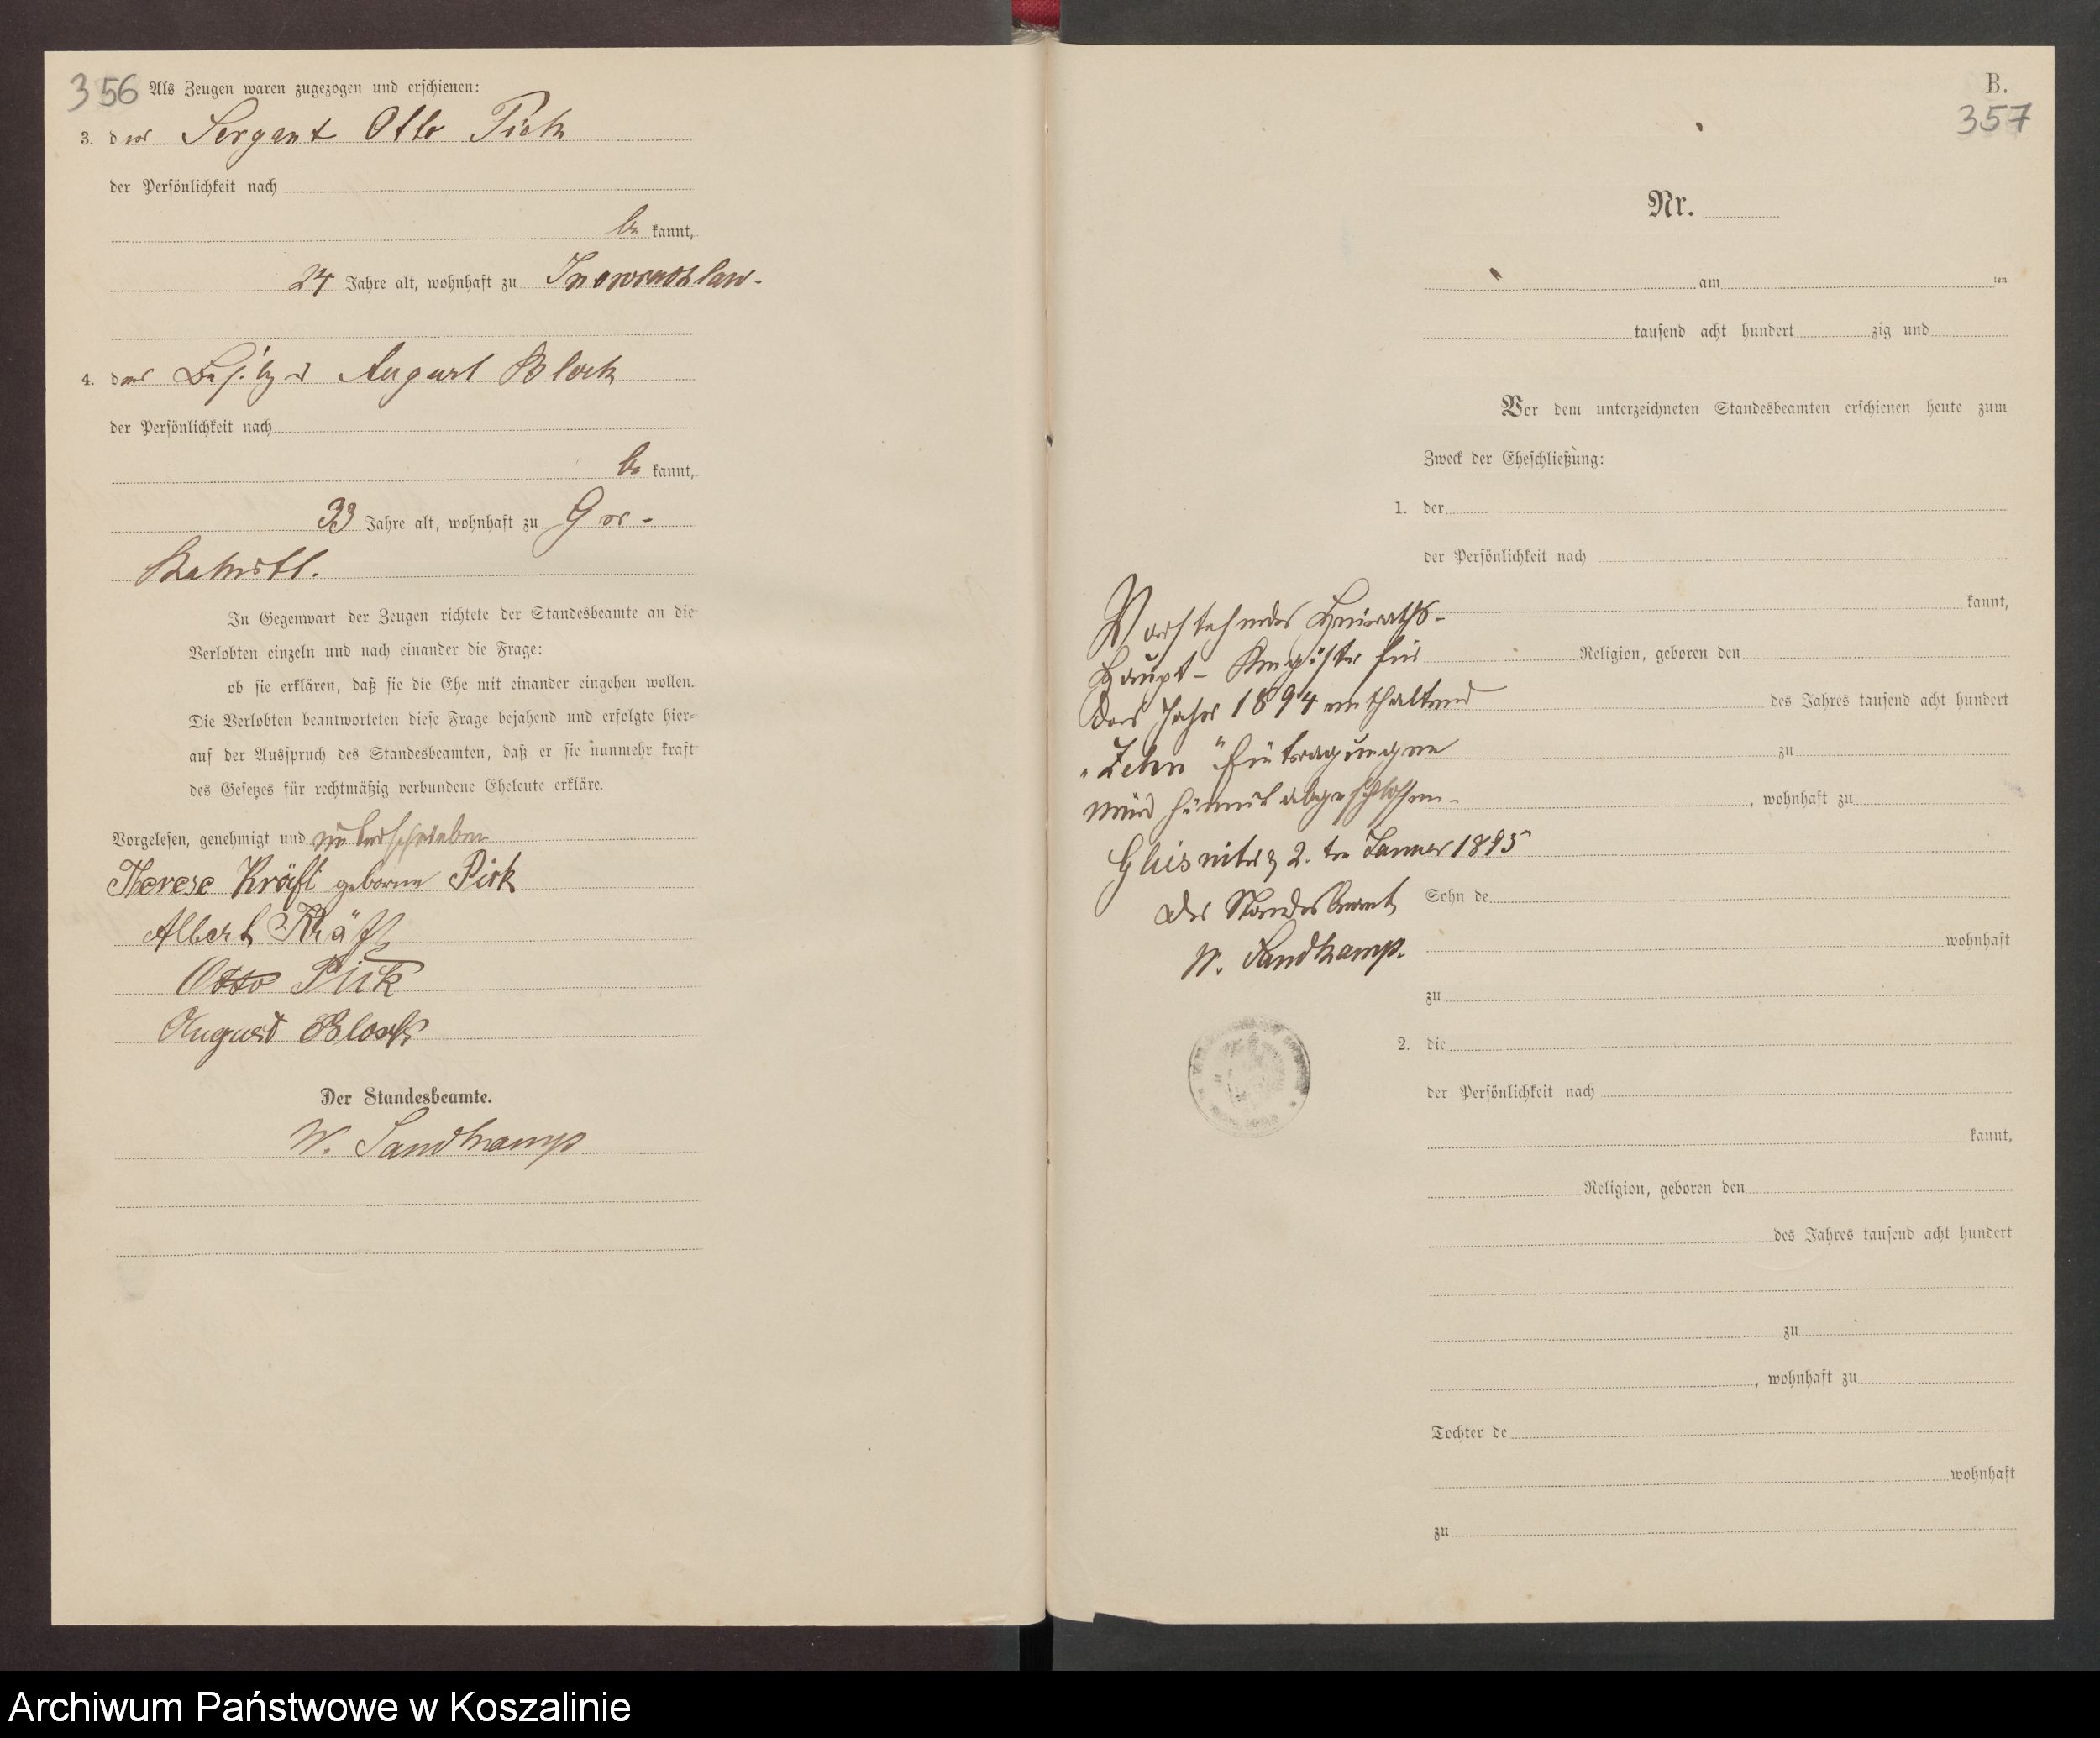 356 Als Zeugen waren zugezogen und erschienen:
3. der Sergant Otto Piek
der Persönlichkeit nach
be kannt,
24 Jahre alt, wohnhaft zu Inowrazlaw.
4. der Besitzer August Block
der Persönlichkeit nach
be kannt,
33 Jahre alt, wohnhaft zu Gr-
In Gegenwart der Zeugen richtete der Standesbeamte an die
Verlobten einzeln und nach einander die Frage:
ob sie erklären, daß sie die Ehe mit einander eingehen wollen.
Die Verlobten beantworteten diese Frage bejahend und erfolgte hier-
auf der Ausspruch des Standesbeamten, daß er sie nunmehr kraft
des Gesetzes für rechtmäßig verbundene Eheleute erkläre.
Vorgelesen, genehmigt und unterschrieben
Therese Kräft geborne Piek
Albert Kräft
Otto Piek
August Block
Der Standesbeamte.
W. Sandkamp
B.
357
Nr.
am ten
tausend acht hundert zig und
Vor dem unterzeichneten Standesbeamten erschienen heute zum
Zweck der Eheschließung:
1. der
der Persönlichkeit nach
kannt,
Religion, geboren den
des Jahres tausend acht hundert
zu
, wohnhaft zu
Sohn de
wohnhaft
zu
2. die
der Persönlichkeit nach
kannt,
Religion, geboren den
des Jahres tausend acht hundert
zu
, wohnhaft zu
Tochter de
wohnhaft
zu
Vorstehendes Heiraths-
Haupt-Register für
das Jahr 1894 enthaltend
"Zehn" Eintragungen
wird hiermit abgeschlossen.
2. ten Januar 1895
Der Standesbeamte
W. Sandkamp.
Archiwum Państwowe w Koszalinie